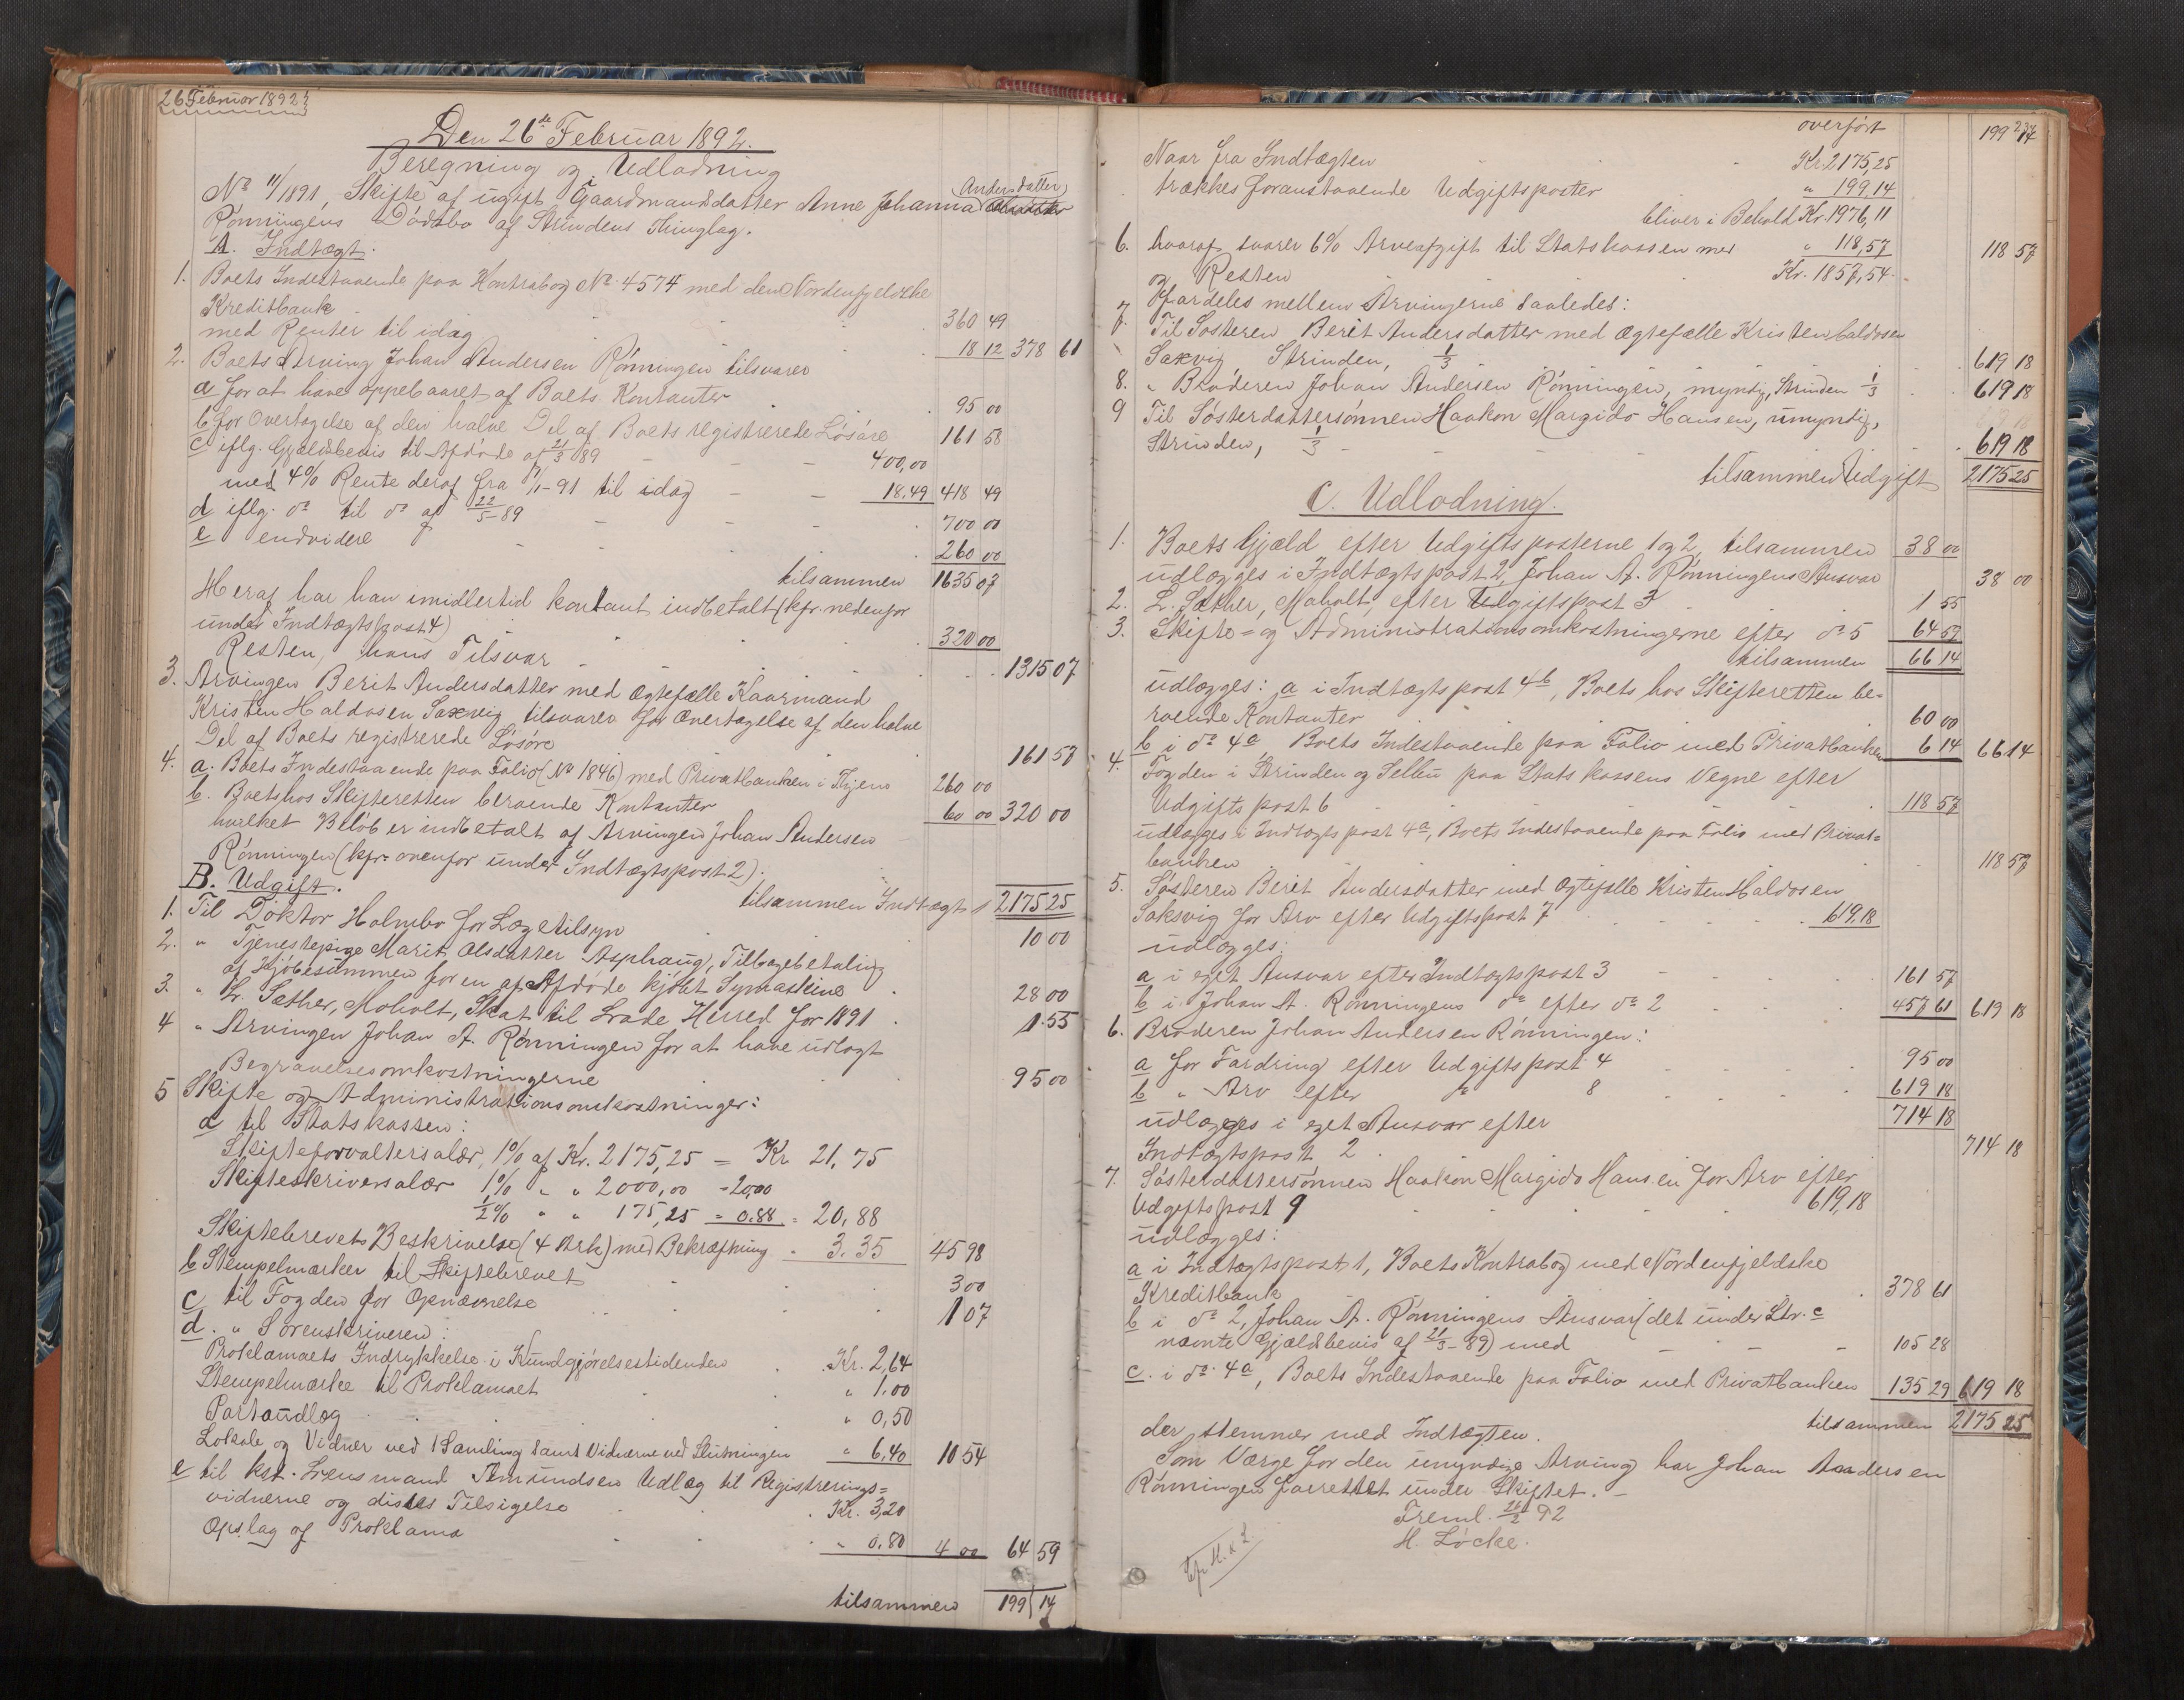 26 Februar 1892
Den 26de Februar 1892.
Beregning og Udlodning
No 11/1891, Skifte af ugift Gaardmandsdatter Anne Johanna Andersdatter
Rönningens Dödsbo af Strindens Thinglag.
A. Indtægt.
1. Boets Indestaaende paa Kontrabog No 4574 med den Nordenfjeldske
Kreditbank 360 49
med Renter til idag 18 12 378 61
2. Boets Arving Johan Andersen Rönningen tilsvarer
a for at have oppebaaret af Boets Kontanter 95 00
b for Overtagelse af den halve Del af Boets registrerede Lösöre 161 58
c iflg. Gjældsbevis til Afdöde af 21/3 89 400,00
med 4% Rente deraf fra 1/1-91 til idag 18,49 418 49
d iflg. do til do af 22/5-89 700 00
e endvidere 260 00
tilsammen 1635 07
Heraf har han imidlertid kontant indbetalt (kfr. nedenfor
under Indtægtspost 4) 320 00
Resten, hans Tilsvar 1315 07
3. Arvingen Berit Andersdatter med Ægtefælle Kaarmand
Kristen Haldosen Saxvig tilsvarer for Overtagelse af den halve
Del af Boets registrerede Lösöre 161 57
4. a. Boets Indestaaende paa Folio (No 1846) med Privatbanken i Thjem 260 00
b. Boets hos Skifteretten beroende Kontanter 60 00 320 00
hvilket Belöb er indbetalt af Arvingen Johan Andersen
Rönningen (kfr. ovenfor under Indtægtspost 2).
tilsammen Indtægt 2175 25
B. Udgift.
1. Til Doktor Holmbo for Lægetilsyn 10 00
2. " Tjenestepige Marit Olsdatter Asphaug, Tilbagebetaling
af Kjöbesummen for en af Afdöde kjöbt Symaskine 28 00
3. " L. Sæther, Moholt, Skat til Lade Herred for 1891 1.55
4 " Arvingen Johan A. Rönningen for at have udlagt
Begravelsesomkostningerne 95 00
5 Skifte og Administrationsomkostninger:
a til Statskassen:
Skifteforvaltersalær, 1% af Kr. 2175,25 = Kr 21,75
Skifteskriversalær 1% " " 2000,00 = 20,00
1/2% " " 175,25 = 0.88 = 20,88
Skiftebrevets Beskrivelse (4 Ark) med Bekræftning " 3.35 45 98
b Stempelmærker til Skiftebrevet 3 00
c til Fogden for Opnævnelse 1 07
d. " Sorenskriveren:
Proklamaets Indrykkelse i Kundgjörelsestidenden Kr. 2,64
Stempelmærke til Proklamaet " 1.00
Portoudlæg " 0,50
Lokale og Vidner ved 1 Samling samt Vidnerne ved Slutningen " 6,40 10 54
e til kst. Lensmand Amundsen Udlæg til Registrerings=
vidnerne og disses Tilsigelse Kr. 3,20
Opslag af Proklama " 0.80 4 00 64 59
tilsammen 199 14
237
overfört 199 14
Naar fra Indtægten Kr. 2175,25
trækkes foranstaaende Udgiftsposter " 199,14
bliver i Behold Kr. 1976,11
6. hvoraf svarer 6% Arveafgift til Statskassen med " 118,57 118 57
og Resten Kr. 1857,54
fordeles mellem Arvingerne saaledes:
7. Til Sösteren Berit Andersdatter med Ægtefælle Kristen Haldosen
Saxvig Strinden, 1/3 619 18
8. " Broderen Johan Andersen Rönningen, myndig, Strinden 1/3 619 18
9 Til Sösterdattersönnen Haakon Margido Hansen, umyndig,
Strinden, 1/3 619 18
tilsammen Udgift 2175 25
C. Udlodning.
1. Boets Gjæld efter Udgiftsposterne 1 og 2, tilsammen 38 00
udlægges i Indtægtspost 2, Johan A. Rönningens Ansvar 38 00
2. L. Sæther, Moholt, efter Udgiftspost 3 1 55
3. Skifte= og Administrationsomkostningerne efter do 5 64 59
tilsammen 66 14
udlægges: a i Indtægtspost 4b, Boets hos Skifteretten be-
roende Kontanter 60 00
b i do 4a, Boets Indestaaende paa Folio med Privatbanken 6 14 66 14
4. Fogden i Strinden og Selbu paa Statskassens Vegne efter
Udgiftspost 6 118 57
udlægges i Indtægtspost 4a, Boets Indestaaende paa Folio med Privat=
banken 118 57
5. Sösteren Berit Andersdatter med Ægtefælle Kristen Haldosen
Saksvig for Arv efter Udgiftspost 7 619,18
udlægges:
a i eget Ansvar efter Indtægtspost 3 161 57
b i Johan A. Rönningens do efter do 2 457 61 619 18
6. Broderen Johan Andersen Rönningen:
a for Fordring efter Udgiftspost 4 95 00
b " Arv efter do 8 619 18
714 18
udlægges i eget Ansvar efter
Indtægtspost 2 714 18
7. Sösterdattersönnen Haakon Margido Hansen for Arv efter
Udgiftspost 9 619,18
udlægges:
a i Indtægtspost 1, Boets Kontrabog med Nordenfjeldske
Kreditbank 378 61
b i do 2, Johan A. Rönningens Ansvar (det under Ltr. c
nævnte Gjældsbevis af 21/3-89) med 105 28
c. i do 4a, Boets Indestaaende paa Folio med Privatbanken 135 29 619 18
tilsammen 2175 25
der stemmer med Indtægten.
Som Værge for den umyndige Arving har Johan Andersen
Rönningen forrettet under Skiftet. –
Freml. 26/2 92
H. Löcke.